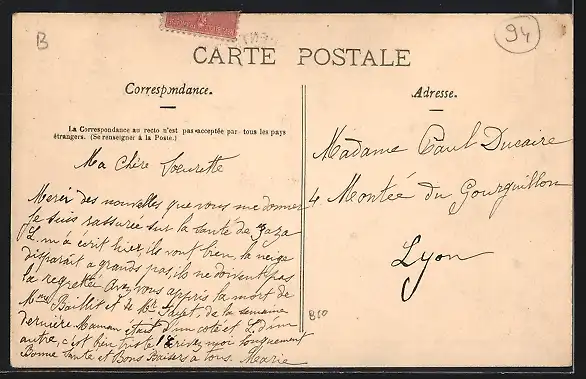 B
94
CARTE POSTALE
Correspondance.
La Correspondance au recto n'est pas acceptée par tous les pays
étrangers. (Se renseigner à la Poste.)
Adresse.
Ma Chère Soeurette
Merci des nouvelles que vous me donner
Je suis rassurée sur la santé de Zaza
L. m'a écrit hier, ils vont bien, la neige
disparait a grands pas, ils ne doivent pas
la regretter Avez vous appris la mort de
Mme Baillit et de Mr de la semaine
dernière Maman était d'un coté et L. d'un
autre, c'est bien triste! Ecrivez moi longuement
Bonne Santé et Bons Baisers à tous. Marie
Madame Paul Ducaire
4 Montée du Gourguillon
Lyon
B50